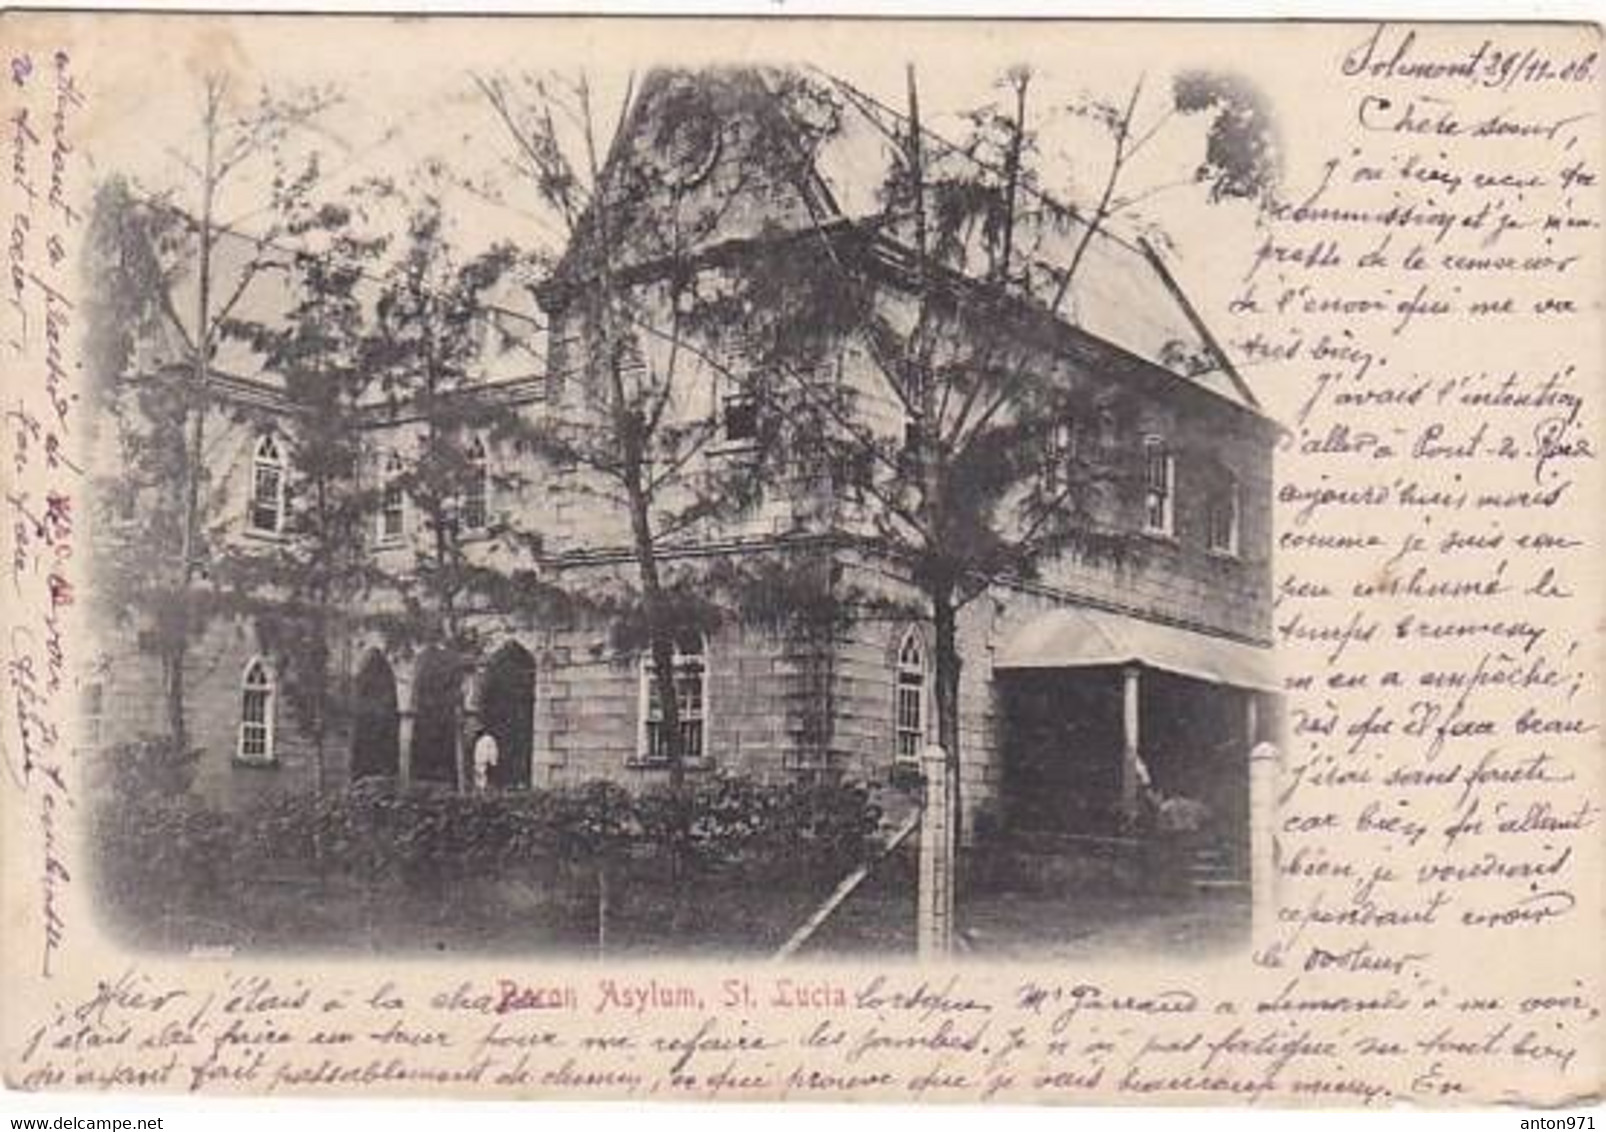 Solemont, 29/11-06.
Chère soeur,
J'ai bien recu ta
commission et je m'em-
presse de te remercier
de l'envoi qui me va
très bien.
J'avais l'intention
d'aller à Pont-de-Roide
aujourd'hui mais
comme je suis un
peu enrhumé le
temps brumeux,
m'en a empêché;
dès qu'il fera beau
j'irai sans faute
car bien qu'allant
bien, je voudrais
cependant revoir
le docteur.
Hier j'étais à la chasse lorsque Mr Garraud a demandé à me voir,
j'étais allé faire un tour pour me refaire les jambes. Je n'ai pas fatigué du tout bien
qu'ayant fait passablement de chemin, ce qui prouve que je vais beaucoup mieux. En
attendant le plaisir de te revoir, je t'embrasse
de tout coeur, ton frère
Baron Asylum, St. Lucia
www.delcampe.net
anton971